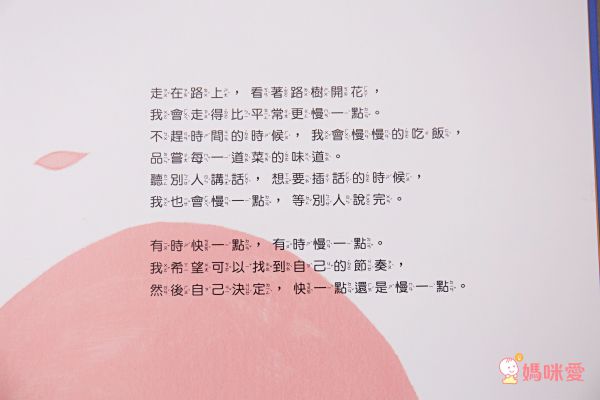 走在路上，看著路樹開花，
我會走得比平常更慢一點。
不趕時間的時候，我會慢慢的吃飯，
品嘗每一道菜的味道。
聽別人講話，想要插話的時候，
我也會慢一點，等別人說完。
有時快一點，有時慢一點。
我希望可以找到自己的節奏，
然後自己決定，快一點還是慢一點。
媽咪愛